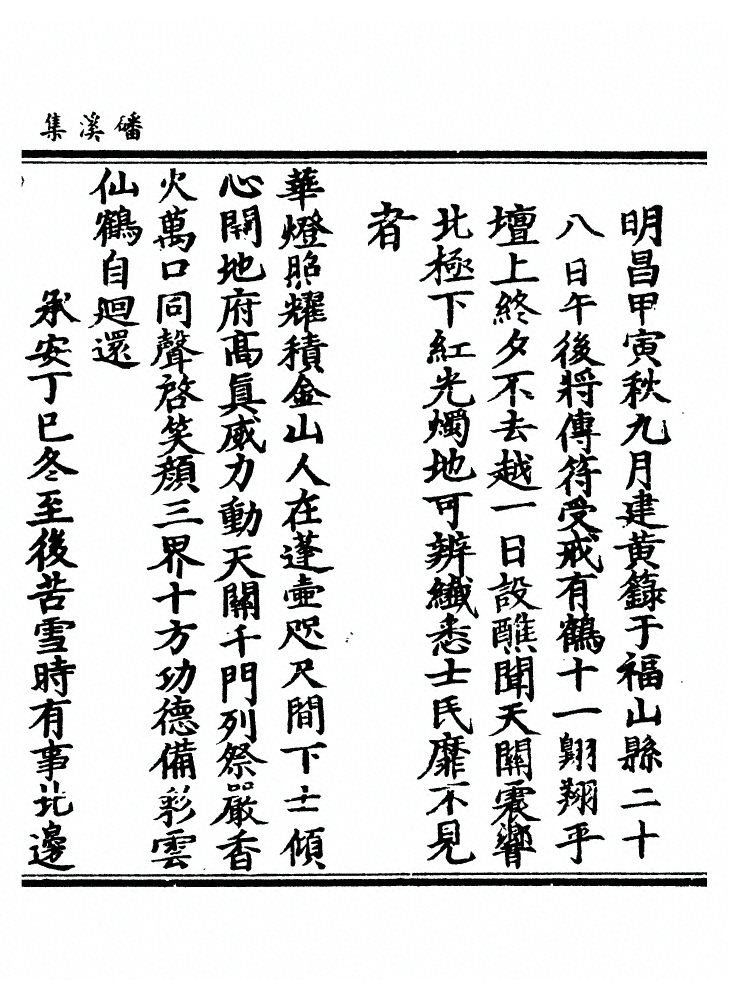 磻溪集
明昌甲寅秋九月建黃籙于福山縣二十
八日午後將傳符受戒有鶴十一翺翔乎
壇上終夕不去越一日設醮聞天關震響
北極下紅光燭地可辨纖悉士民靡不見
者
華燈照耀積金山人在蓬壷咫尺間下士傾
心開地府高眞威力動天關千門列祭嚴香
火萬口同聲啓笑顏三界十方功德備彩雲
仙鶴自迴還
承安丁巳冬至後苦雪時有事北邊